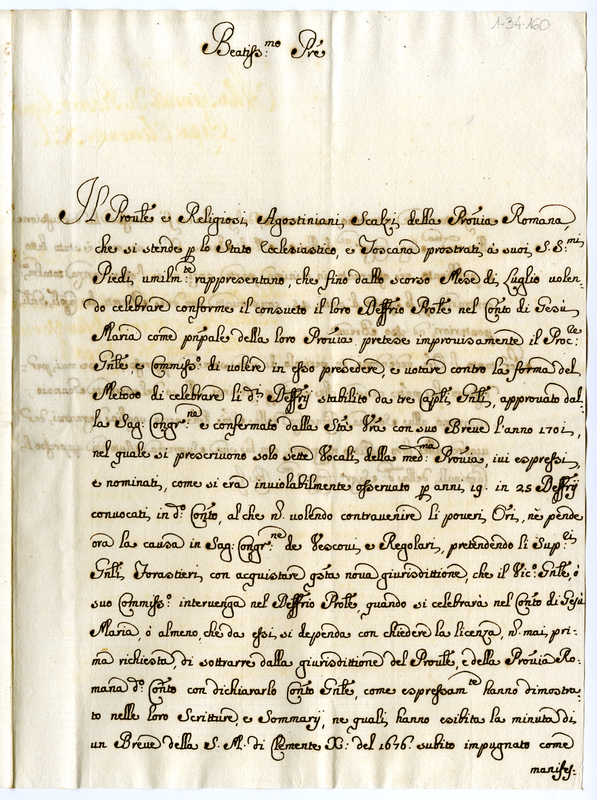 1-34-160
Beatiss:mo Pre
Il Proule e Religiosi Agostiniani Scalzi della Prouia Romana,
che si stende p lo Stato Ecclesiastico, e Toscana prostrati à suoi S.S.mi
Piedi umilmte rappresentano, che fino dallo scorso Mese di Luglio uolen-
do celebrare conforme il consueto il loro Deffrio Prole nel Conto di Gesù
Maria come pnpale della loro Prouia, pretese improuisamente il Proc:re
Gnle e Commisso: di uolere in esso presedere, e uotare contro la forma del
Metodo di celebrare li di Deffrij stabilito da tre Capli Gnli, approuato dal-
la Sag: Congr:ne e confermato dalla Stà Vra con suo Breue l'anno 1701,
nel quale si prescriuono solo sette Vocali della medma: Prouia, iui espressi,
e nominati, come si era inuiolabilmente osseruato p anni 19. in 25 Deffrij
conuocati in do: Conto, al che n: uolendo contrauenire li poueri Ori, ne pende
ora la causa in Sag: Congr:ne de Vescoui e Regolari, pretendendo li Sup:ri
Gnli Forastieri con acquistare qsta noua giurisdittione, che il Vic:o Gnle, ò
suo Commiss:o interuenga nel Deffrio Prole, quando si celebrarà nel Conto di Gesù
Maria, ò almeno, che da essi si dependa con chiedere la licenza, n: mai pri-
ma richiesta, di sottrarre dalla giurisdittione del Proule, e della Prouia Ro-
mana do: Conto con dichiararlo Conto Gnle, come espressamte hanno dimostra-
to nelle loro Scritture, e Sommarij, ne quali hanno esibita la minuta di
un Breue della S. M. di Clemente X: del 1676. subito impugnato come
manifes-